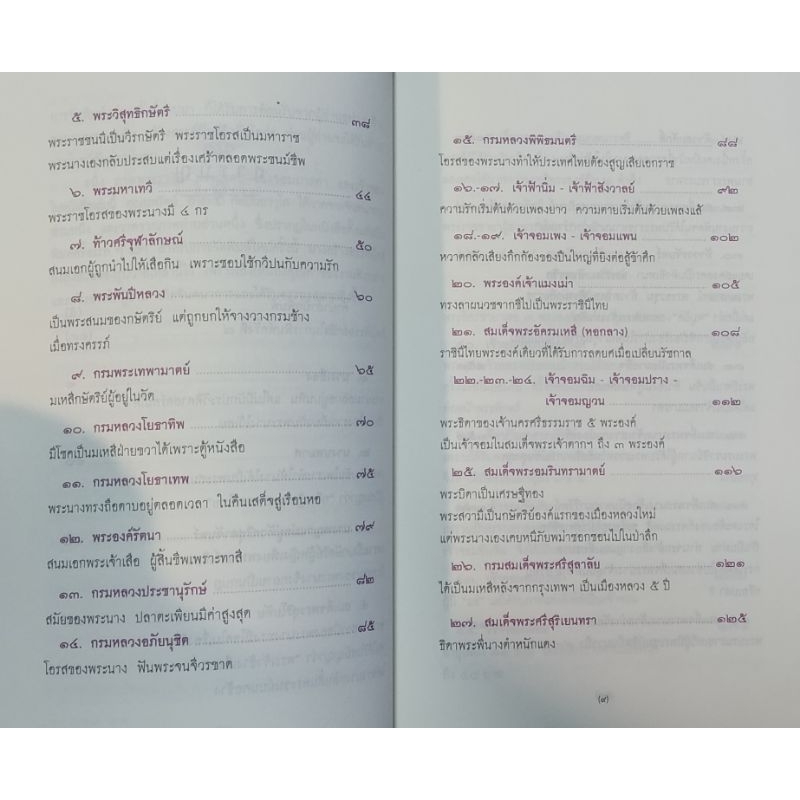 ๕. พระวิสุทธิกษัตรี ๓๘
พระราชชนนีเป็นวีรกษัตรี พระราชโอรสเป็นมหาราช
พระนางเองกลับประสบแต่เรื่องเศร้าตลอดพระชนม์ชีพ
๖. พระมหาเทวี ๔๔
พระราชโอรสของพระนางมี ๔ กร
๗. ท้าวศรีจุฬาลักษณ์ ๕๐
สนมเอกผู้ถูกนำไปให้เสือกิน เพราะชอบใช้กวีปนกับความรัก
๘. พระพันปีหลวง ๖๐
เป็นพระสนมของกษัตริย์ แต่ถูกยกให้จางวางกรมช้าง
เมื่อทรงครรภ์
๙. กรมพระเทพามาตย์ ๖๕
มเหสีกษัตริย์ผู้อยู่ในวัด
๑๐. กรมหลวงโยธาทิพ ๗๐
มีโชคเป็นมเหสีฝ่ายขวาได้เพราะตู้หนังสือ
๑๑. กรมหลวงโยธาเทพ ๗๕
พระนางทรงถือดาบอยู่ตลอดเวลา ในคืนเสด็จสู่เรือนหอ
๑๒. พระองค์รัตนา ๗๙
สนมเอกพระเจ้าเสือ ผู้สิ้นชีพเพราะทาสี
๑๓. กรมหลวงประชานุรักษ์ ๘๒
สมัยของพระนาง ปลาตะเพียนมีค่าสูงสุด
๑๔. กรมหลวงอภัยนุชิต ๘๕
โอรสของพระนาง ฟันพระจนจีวรขาด
๑๕. กรมหลวงพิพิธมนตรี ๘๘
โอรสของพระนางทำให้ประเทศไทยต้องสูญเสียเอกราช
๑๖.-๑๗. เจ้าฟ้านิ่ม - เจ้าฟ้าสังวาลย์ ๙๒
ความรักเริ่มต้นด้วยเพลงยาว ความตายเริ่มต้นด้วยเพลงแส้
๑๘.-๑๙. เจ้าจอมเพง - เจ้าจอมแพน ๑๐๒
หวาดกลัวเสียงกึกก้องของปืนใหญ่ที่ยิงต่อสู้ข้าศึก
๒๐. พระองค์เจ้าแมงเม่า ๑๐๕
ทรงลาผนวชจากชีไปเป็นพระราชินีไทย
๒๑. สมเด็จพระอัครมเหสี (หอกลาง) ๑๐๘
ราชินีไทยพระองค์เดียวที่ได้รับการลดยศเมื่อเปลี่ยนรัชกาล
๒๒.-๒๓.-๒๔. เจ้าจอมฉิม - เจ้าจอมปราง -
เจ้าจอมญวน ๑๑๒
พระธิดาของเจ้านครศรีธรรมราช ๕ พระองค์
เป็นเจ้าจอมในสมเด็จพระเจ้าตากฯ ถึง ๓ พระองค์
๒๕. สมเด็จพระอมรินทรามาตย์ ๑๑๖
พระบิดาเป็นเศรษฐีทอง
พระสวามีเป็นกษัตริย์องค์แรกของเมืองหลวงใหม่
แต่พระนางเองเคยหนีภัยพม่าซอกซอนไปในป่าลึก
๒๖. กรมสมเด็จพระศรีสุลาลัย ๑๒๑
ได้เป็นมเหสีหลังจากกรุงเทพฯ เป็นเมืองหลวง ๕ ปี
๒๗. สมเด็จพระศรีสุริเยนทรา ๑๒๕
ธิดาพระพี่นางตำหนักแดง
(๙)